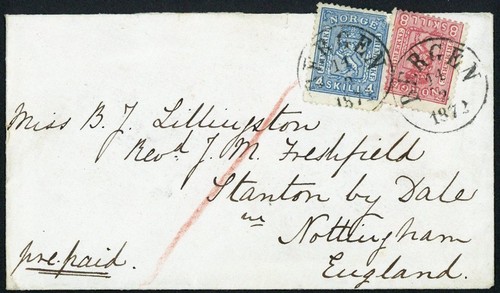 NORGE
4 SKILL 4
8 SKILL 8
BERGEN
1872
BERGEN
187
Miss B. J. Lillingston
Revd J. M. Freshfield
Stanton by Dale
nr Nottingham
England.
prepaid.